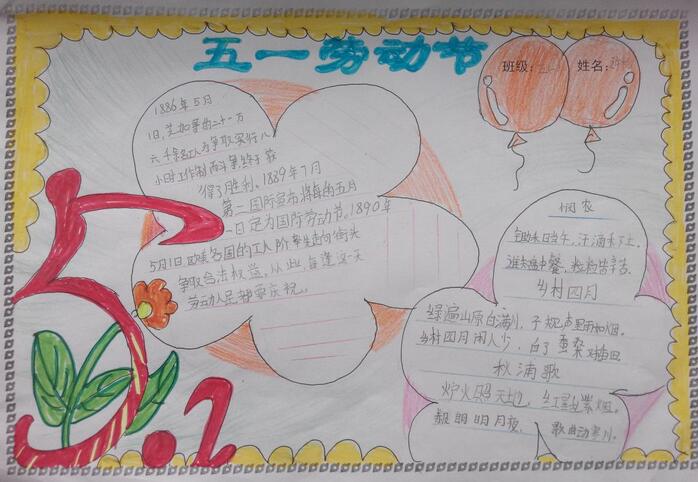 五一劳动节
班级:
姓名:
1886年5月
1日,芝加哥的二十一万
六千余名工人为争取实行八
小时工作制而斗争,终于获
得了胜利。1889年7月
第二国际宣布将每年的五月
一日定为国际劳动节。1890年
5月1日欧美各国的工人阶率先走向街头
争取合法权益,从此,每逢这一天
劳动人民都要庆祝。
悯农
锄禾日当午,汗滴禾下土
谁知盘中餐,粒粒皆辛苦
乡村四月
绿遍山原白满川,子规声里雨如烟。
乡村四月闲人少,白了蚕桑对插田
秋浦歌
炉火照天地,红星乱紫烟。
赧明明月夜,歌曲动寒川。
5.1